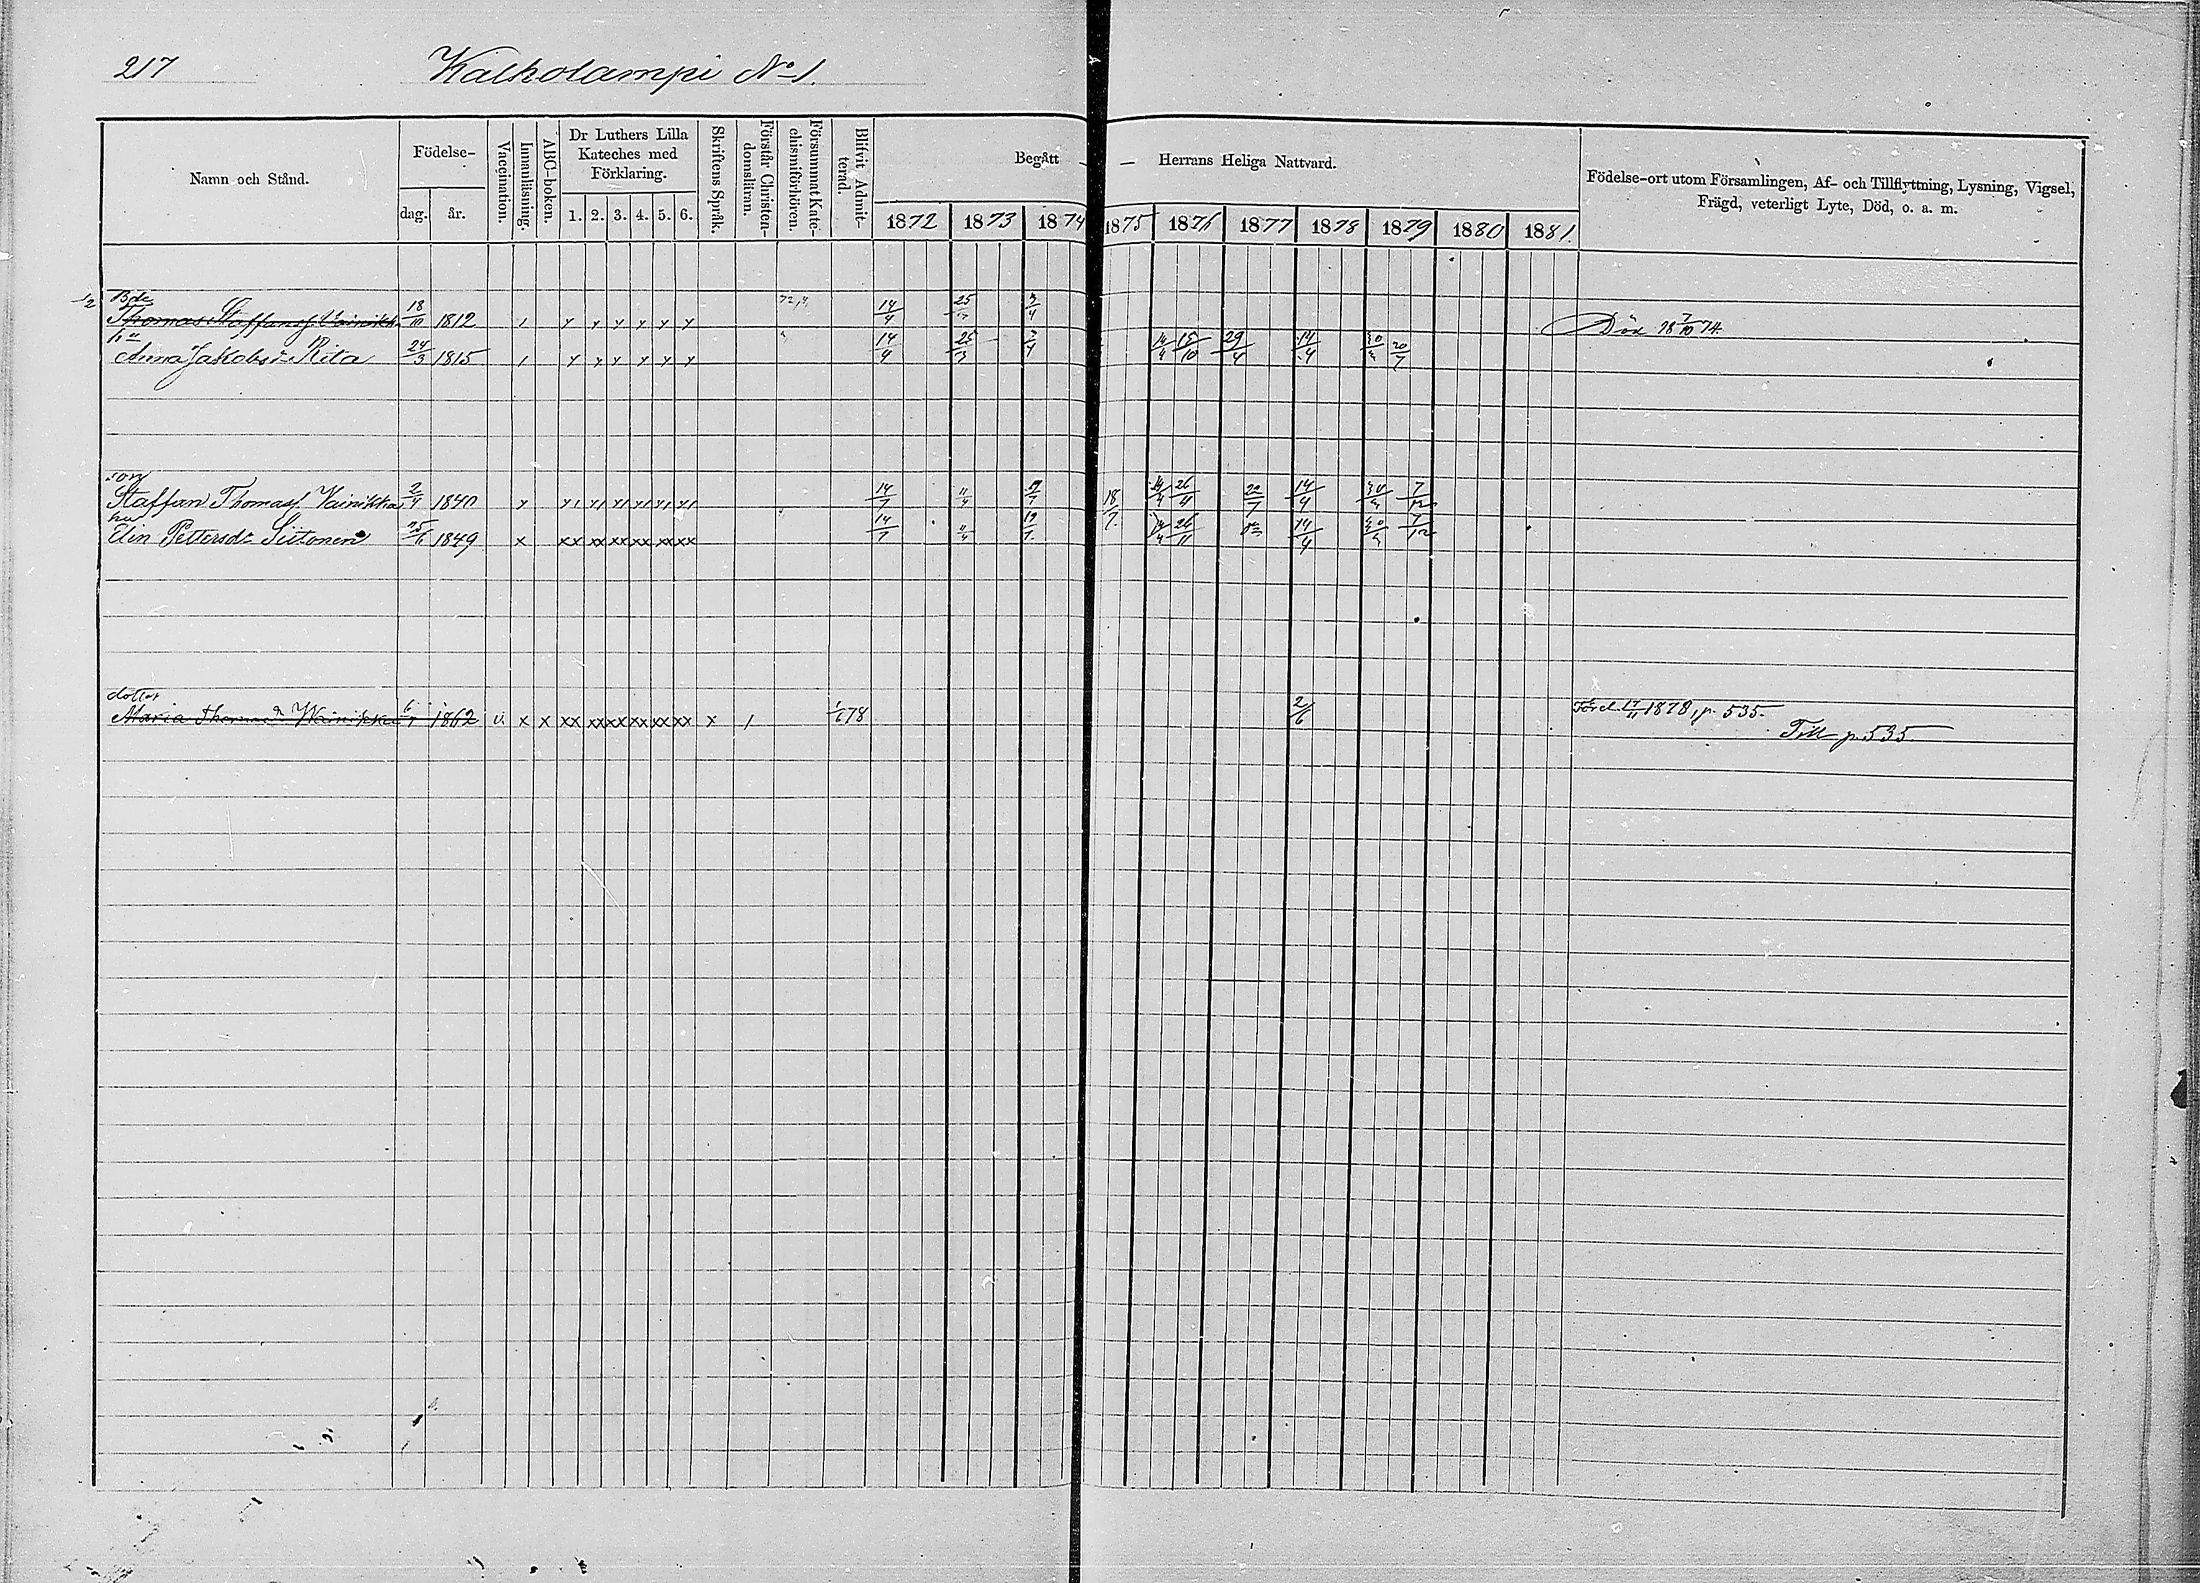 217 Kalkolampi No 1.
Namn och Stånd. Födelse- dag. år. Vaccination. Innanläsning. ABC-boken. Dr Luthers Lilla Kateches med Förklaring. 1. 2. 3. 4. 5. 6. Skriftens Språk. Förstår Christendomsläran. Försummat Katechismiförhören. Blifvit Admitterad.
Begått — Herrans Heliga Nattvard.
1872 1873 1874 1875 1876 1877 1878 1879 1880 1881.
Födelse-ort utom Församlingen, Af- och Tillflyttning, Lysning, Vigsel,
Frägd, veterligt Lyte, Död, o. a. m.
1/2 Bde
Thomas Staffansf. Vainikka 18/10 1812 14/4 3/4 Död 18 7/10 74.
hu
Anna Jakobsdr Kita 24/3 1815 14/4 3/4 15/10 29/4 14/4 20/7
son
Staffan Thomasf. Vainikka 2/4 1840 14/7 11/4 19/7 18/7 26/11 22/7 14/4 7/12
hu
Elin Pettersdr Siitonen 25/11 1849 x xx xx xx xx xx xx 14/7 11/4 19/7 26/11 14/4 7/12
dotter
Maria Thomasdr Wainikka 1862 v. x x xx xx xx xx xx xx x / 1/6 78 2/6 1878, p. 535.
Till p. 535